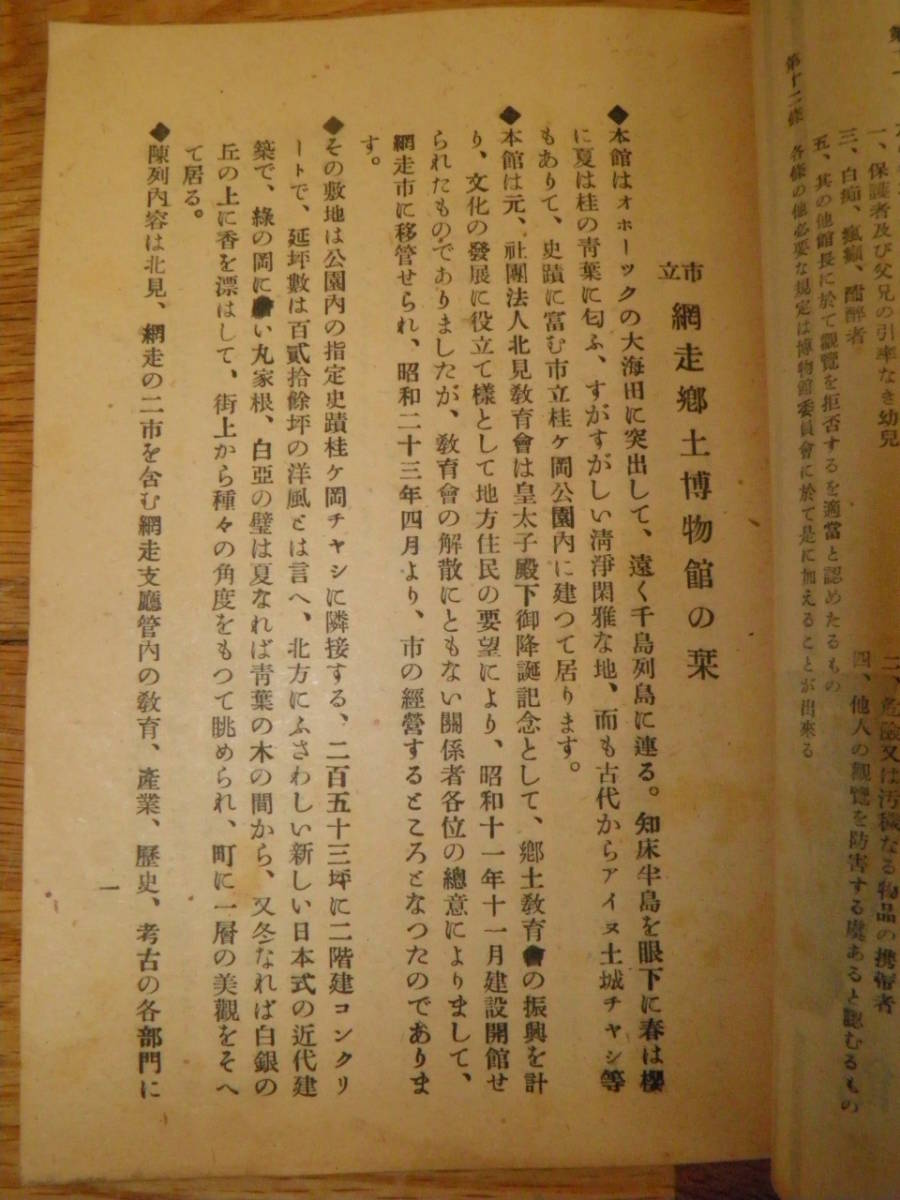 第十二條　各條の他必要な規定は博物館委員會に於て是に加えることが出來る
一、保護者及び父兄の引率なき幼兒
二、危險又は汚穢なる物品の携帶者
三、白痴、瘋癲、酩醉者
四、他人の觀覽を防害する虞あると認むるもの
五、其の他館長に於て觀覽を拒否するを適當と認めたるもの
市立 網走鄕土博物館の栞
◆本館はオホーツクの大海田に突出して、遠く千島列島に連る。知床半島を眼下に春は櫻
に夏は桂の靑葉に匂ふ、すがすがしい淸淨閑雅な地、而も古代からアイヌ土城チャシ等
もありて、史蹟に富む市立桂ヶ岡公園內に建つて居ります。
◆本館は元、社團法人北見敎育會は皇太子殿下御降誕記念として、鄕土敎育會の振興を計
り、文化の發展に役立て樣として地方住民の要望により、昭和十一年十一月建設開館せ
られたものでありましたが、敎育會の解散にともない關係者各位の總意によりまして、
網走市に移管せられ、昭和二十三年四月より、市の經營するところとなつたのでありま
す。
◆その敷地は公園內の指定史蹟桂ヶ岡チャシに隣接する、二百五十三坪に二階建コンクリ
ートで、延坪數は百貳拾餘坪の洋風とは言へ、北方にふさわしい新しい日本式の近代建
築で、綠の岡に い丸家根、白亞の璧は夏なれば靑葉の木の間から、又冬なれば白銀の
丘の上に香を漂はして、街上から種々の角度をもつて眺められ、町に一層の美觀をそへ
て居る。
◆陳列內容は北見、網走の二市を含む網走支廳管內の敎育、產業、歷史、考古の各部門に
一